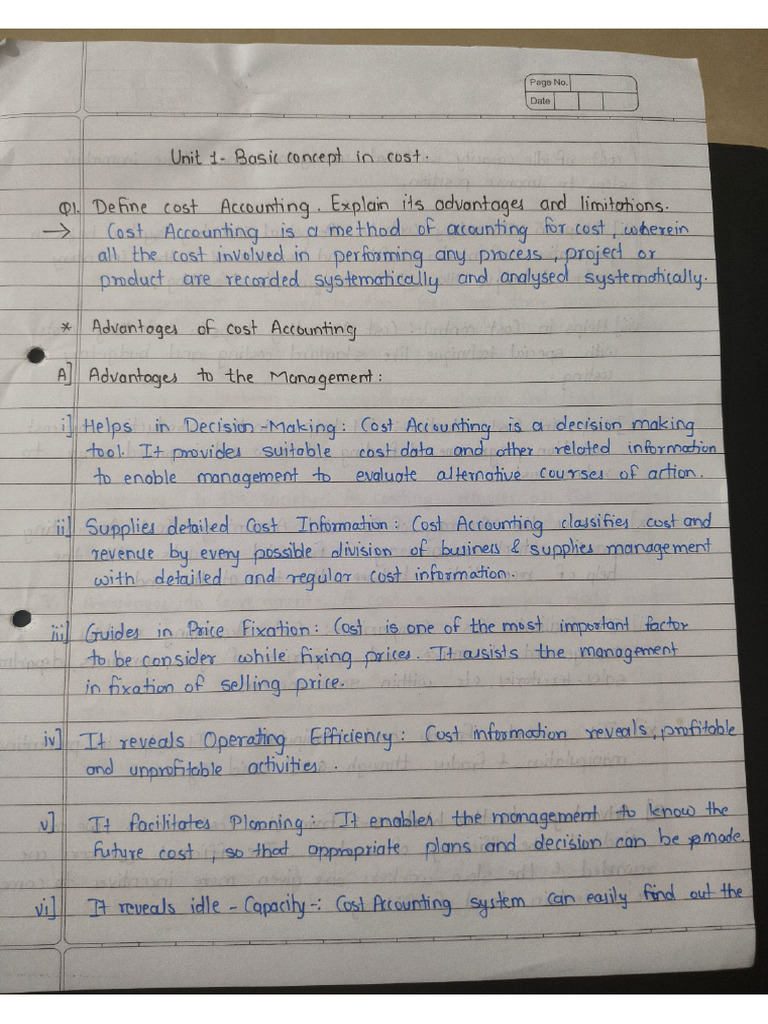 Page No.
Date
Unit 1- Basic concept in cost.
Q1. Define cost Accounting. Explain its advantages and limitations.
→ Cost Accounting is a method of accounting for cost, wherein
all the cost involved in performing any process, project or
product are recorded systematically and analysed systematically.
* Advantages of cost Accounting
A] Advantages to the Management:
i] Helps in Decision-Making: Cost Accounting is a decision making
tool. It provides suitable cost data and other related information
to enable management to evaluate alternative courses of action.
ii] Supplies detailed Cost Information: Cost Accounting classifies cost and
revenue by every possible division of business & supplies management
with detailed and regular cost information.
iii] Guides in Price Fixation: Cost is one of the most important factor
to be consider while fixing prices. It assists the management
in fixation of selling price.
iv] It reveals Operating Efficiency: Cost information reveals, profitable
and unprofitable activities.
v] It facilitates Planning: It enables the management to know the
future cost, so that appropriate plans and decision can be made.
vi] It reveals idle - Capacity-: Cost Accounting system can easily find out the